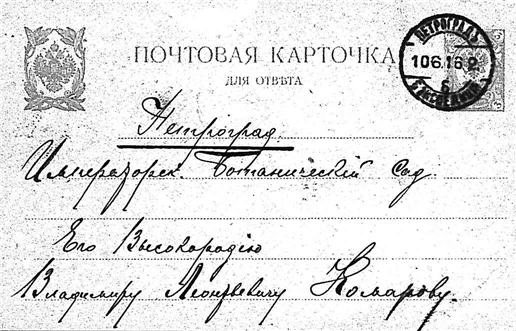 ПОЧТОВАЯ КАРТОЧКА
ДЛЯ ОТВѢТА
ПЕТРОГРАДЪ
10 6.16 2
6
Петроград.
Императорск. Ботаническій Сад
Его Высокородію
Владимиру Леонтьевичу Комарову.